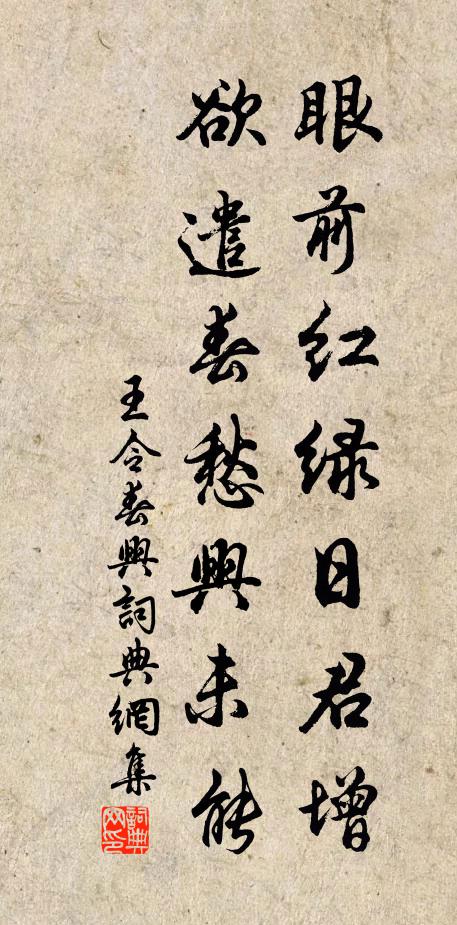 眼前红绿日君增
欲遣春愁興未能
王令春興詞典網集
詞典网印